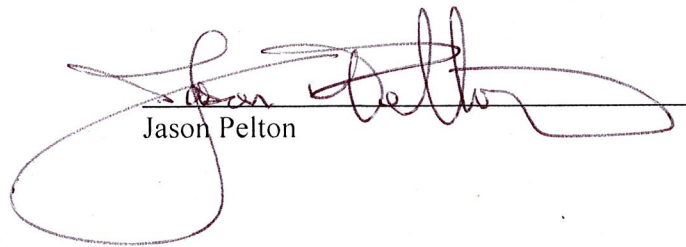 Jason Pelton
Jason Pelton